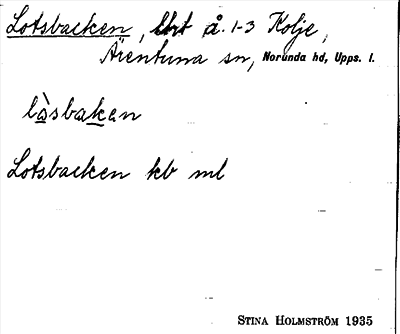 Lotsbacken, lht å. 1-3 Kolje,
Ärentuna sn, Norunda hd, Upps. l.
làsbakan
Lotsbacken kb ml
STINA HOLMSTRÖM 1935